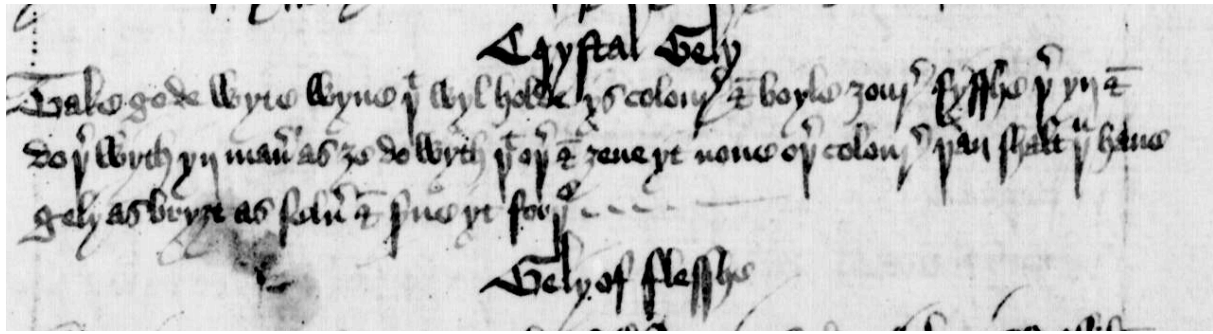 Crystal Gely
Take gode wyte wyne þͭ wyl holde ys colour̛ & boyle ȝour̛ fyssħe þ̛ yn &
do þ̛ wyth yn man̛ as ȝe do wyth þͭ oþ̛ & ȝeue yt none oþ̛ colour̛ þan shalt þͧ haue
gely as bryȝt as selư & s̛ue yt forþͤ
Gely of flessħe